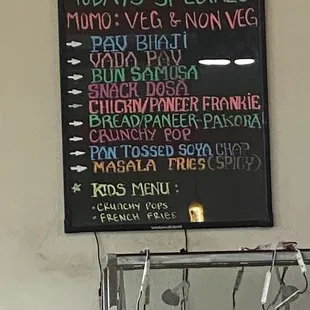 TODAY'S SPECIALS
MOMO: VEG & NON VEG
PAV BHAJI
VADA PAV
BUN SAMOSA
SNACK DOSA
CHICKN/PANEER FRANKIE
BREAD/PANEER-PAKORA
CRUNCHY POP
PAN TOSSED SOYA CHAP
MASALA FRIES (SPICY)
KIDS MENU :
• CRUNCHY POPS
• FRENCH FRIES